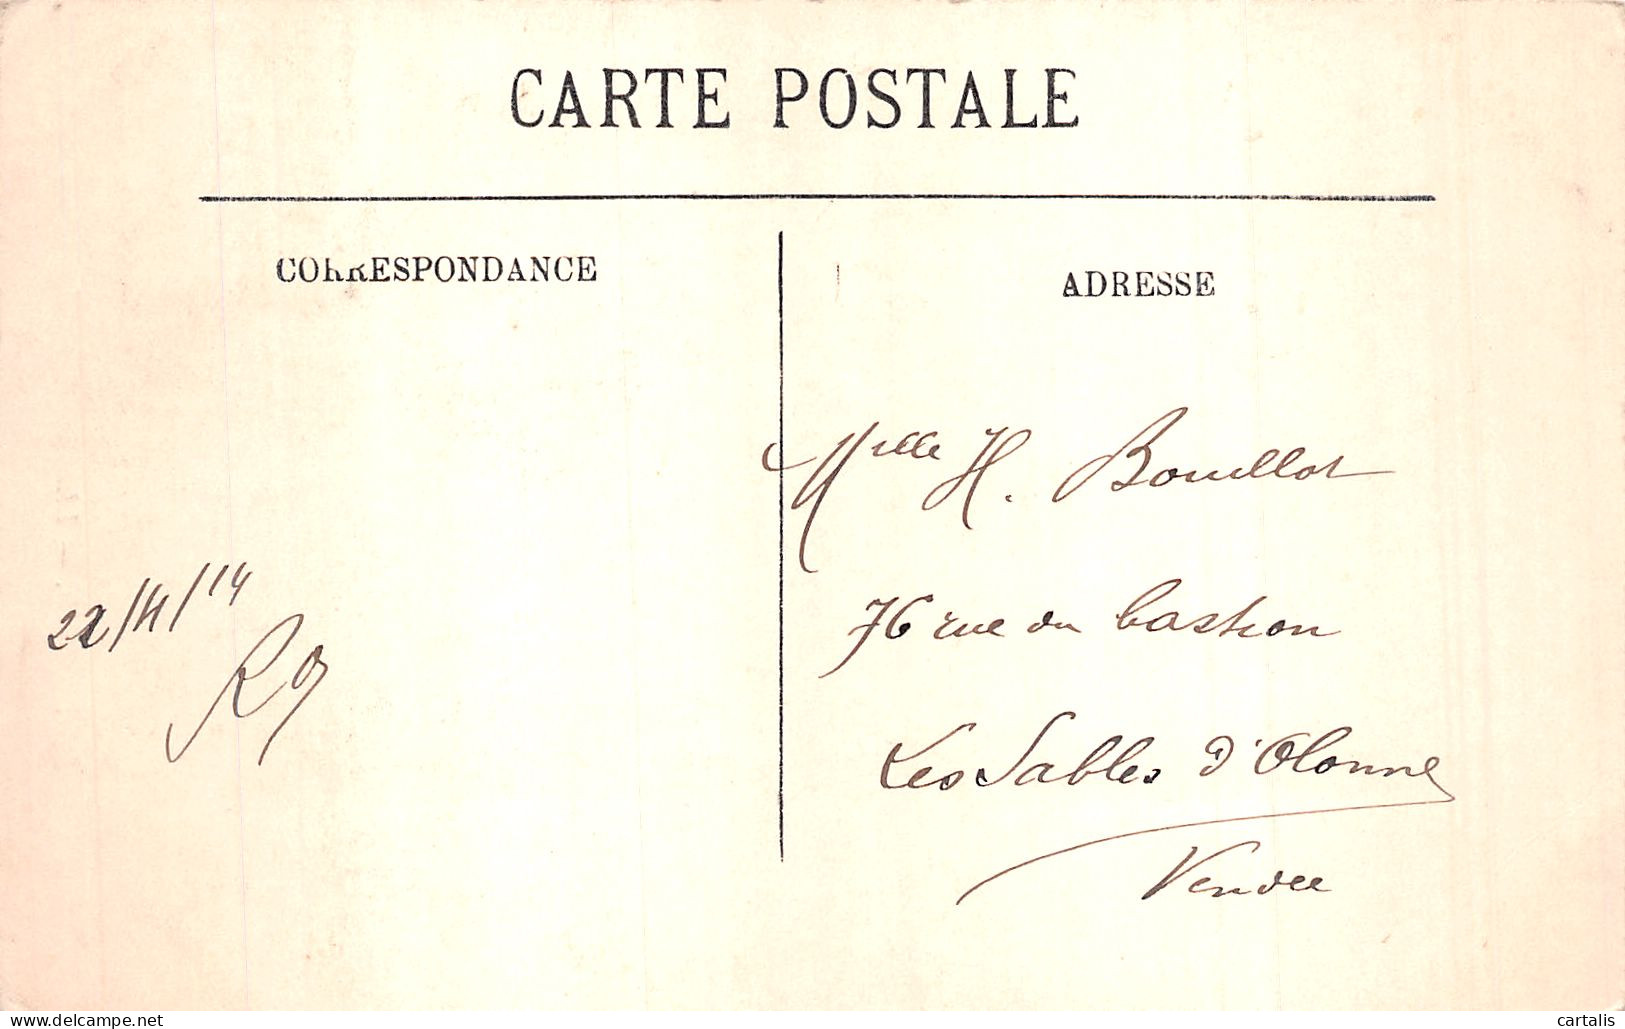 CARTE POSTALE
CORRESPONDANCE
ADRESSE
Melle H. Bouillot
76 rue du bastion
Les Sables d'Olonne
Vendee
22/11/14
www.delcampe.net
cartalis